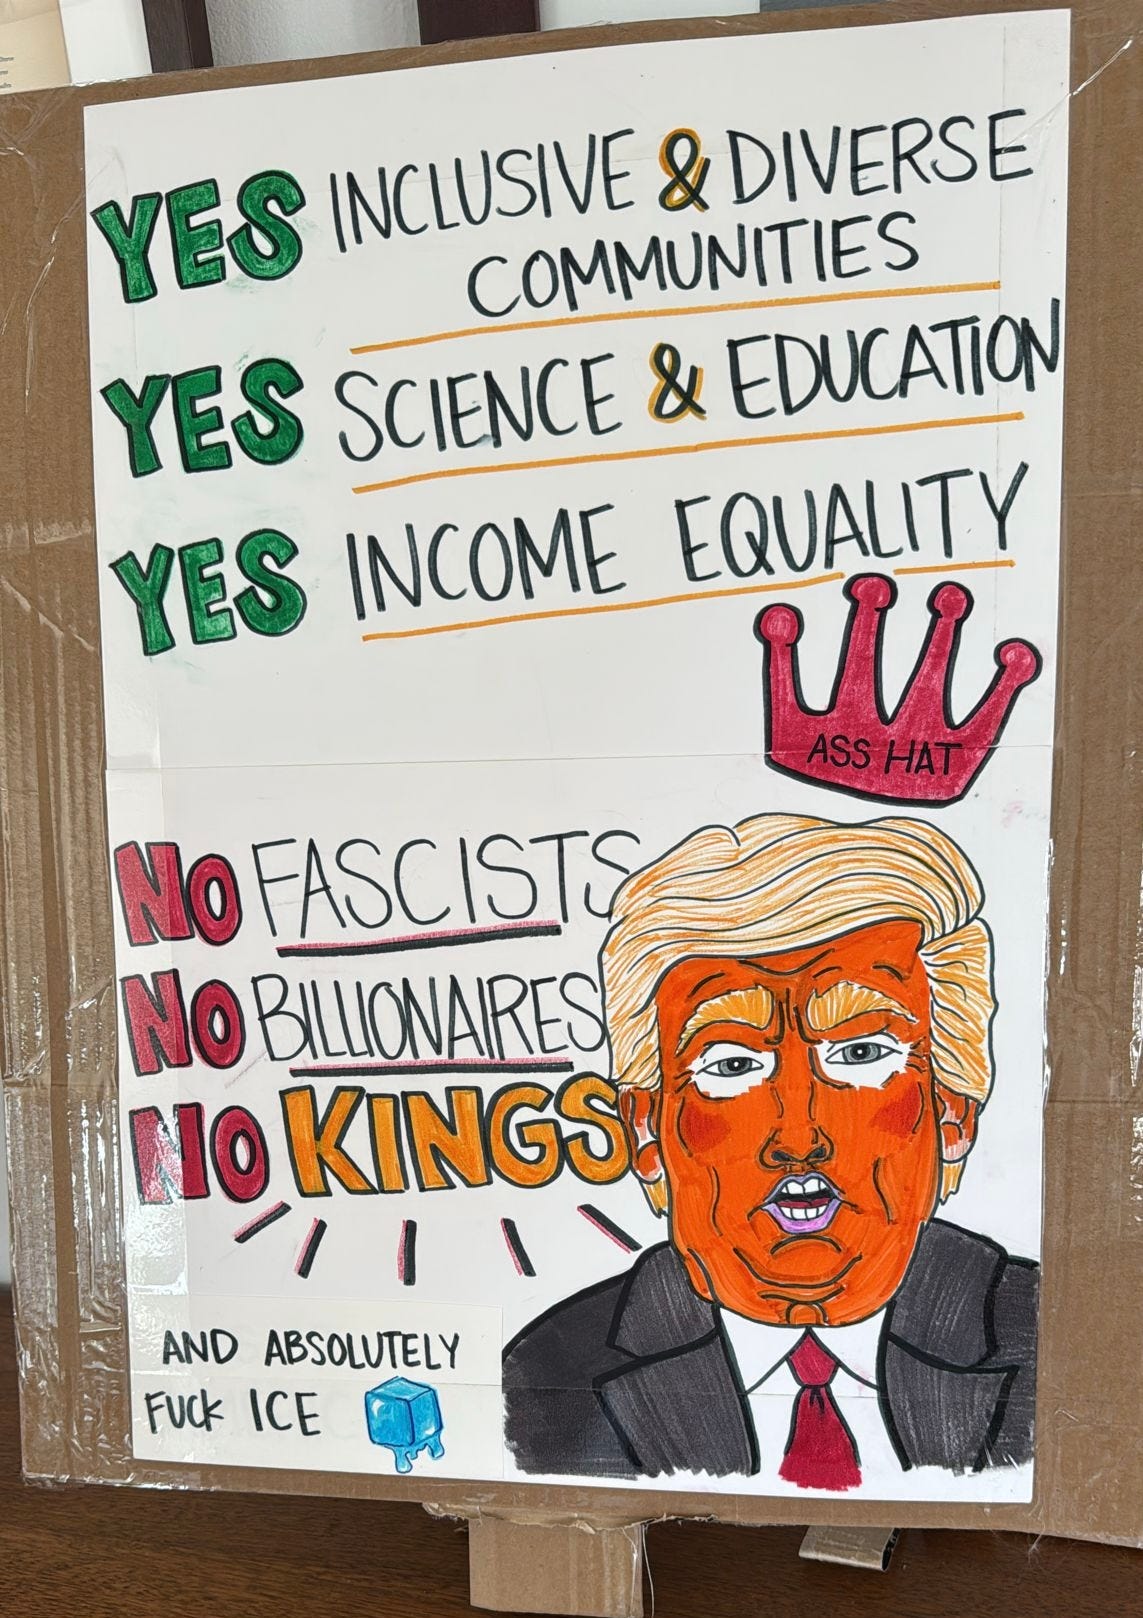 YES INCLUSIVE & DIVERSE
COMMUNITIES
YES SCIENCE & EDUCATION
YES INCOME EQUALITY
ASS HAT
NO FASCISTS
NO BILLIONAIRES
NO KINGS
AND ABSOLUTELY
FUCK ICE